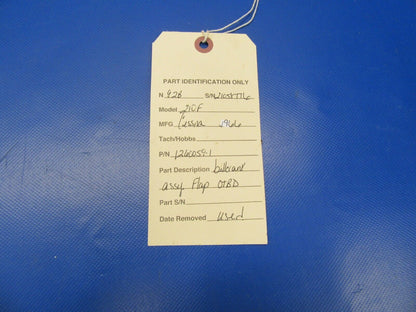 PART IDENTIFICATION ONLY
N 928 S/N 21058776
Model 210F
MFG Cessna 1966
Tach/Hobbs
P/N 1260059-1
Part Description bellcrank
assy Flap OTBD
Part S/N
Date Removed used